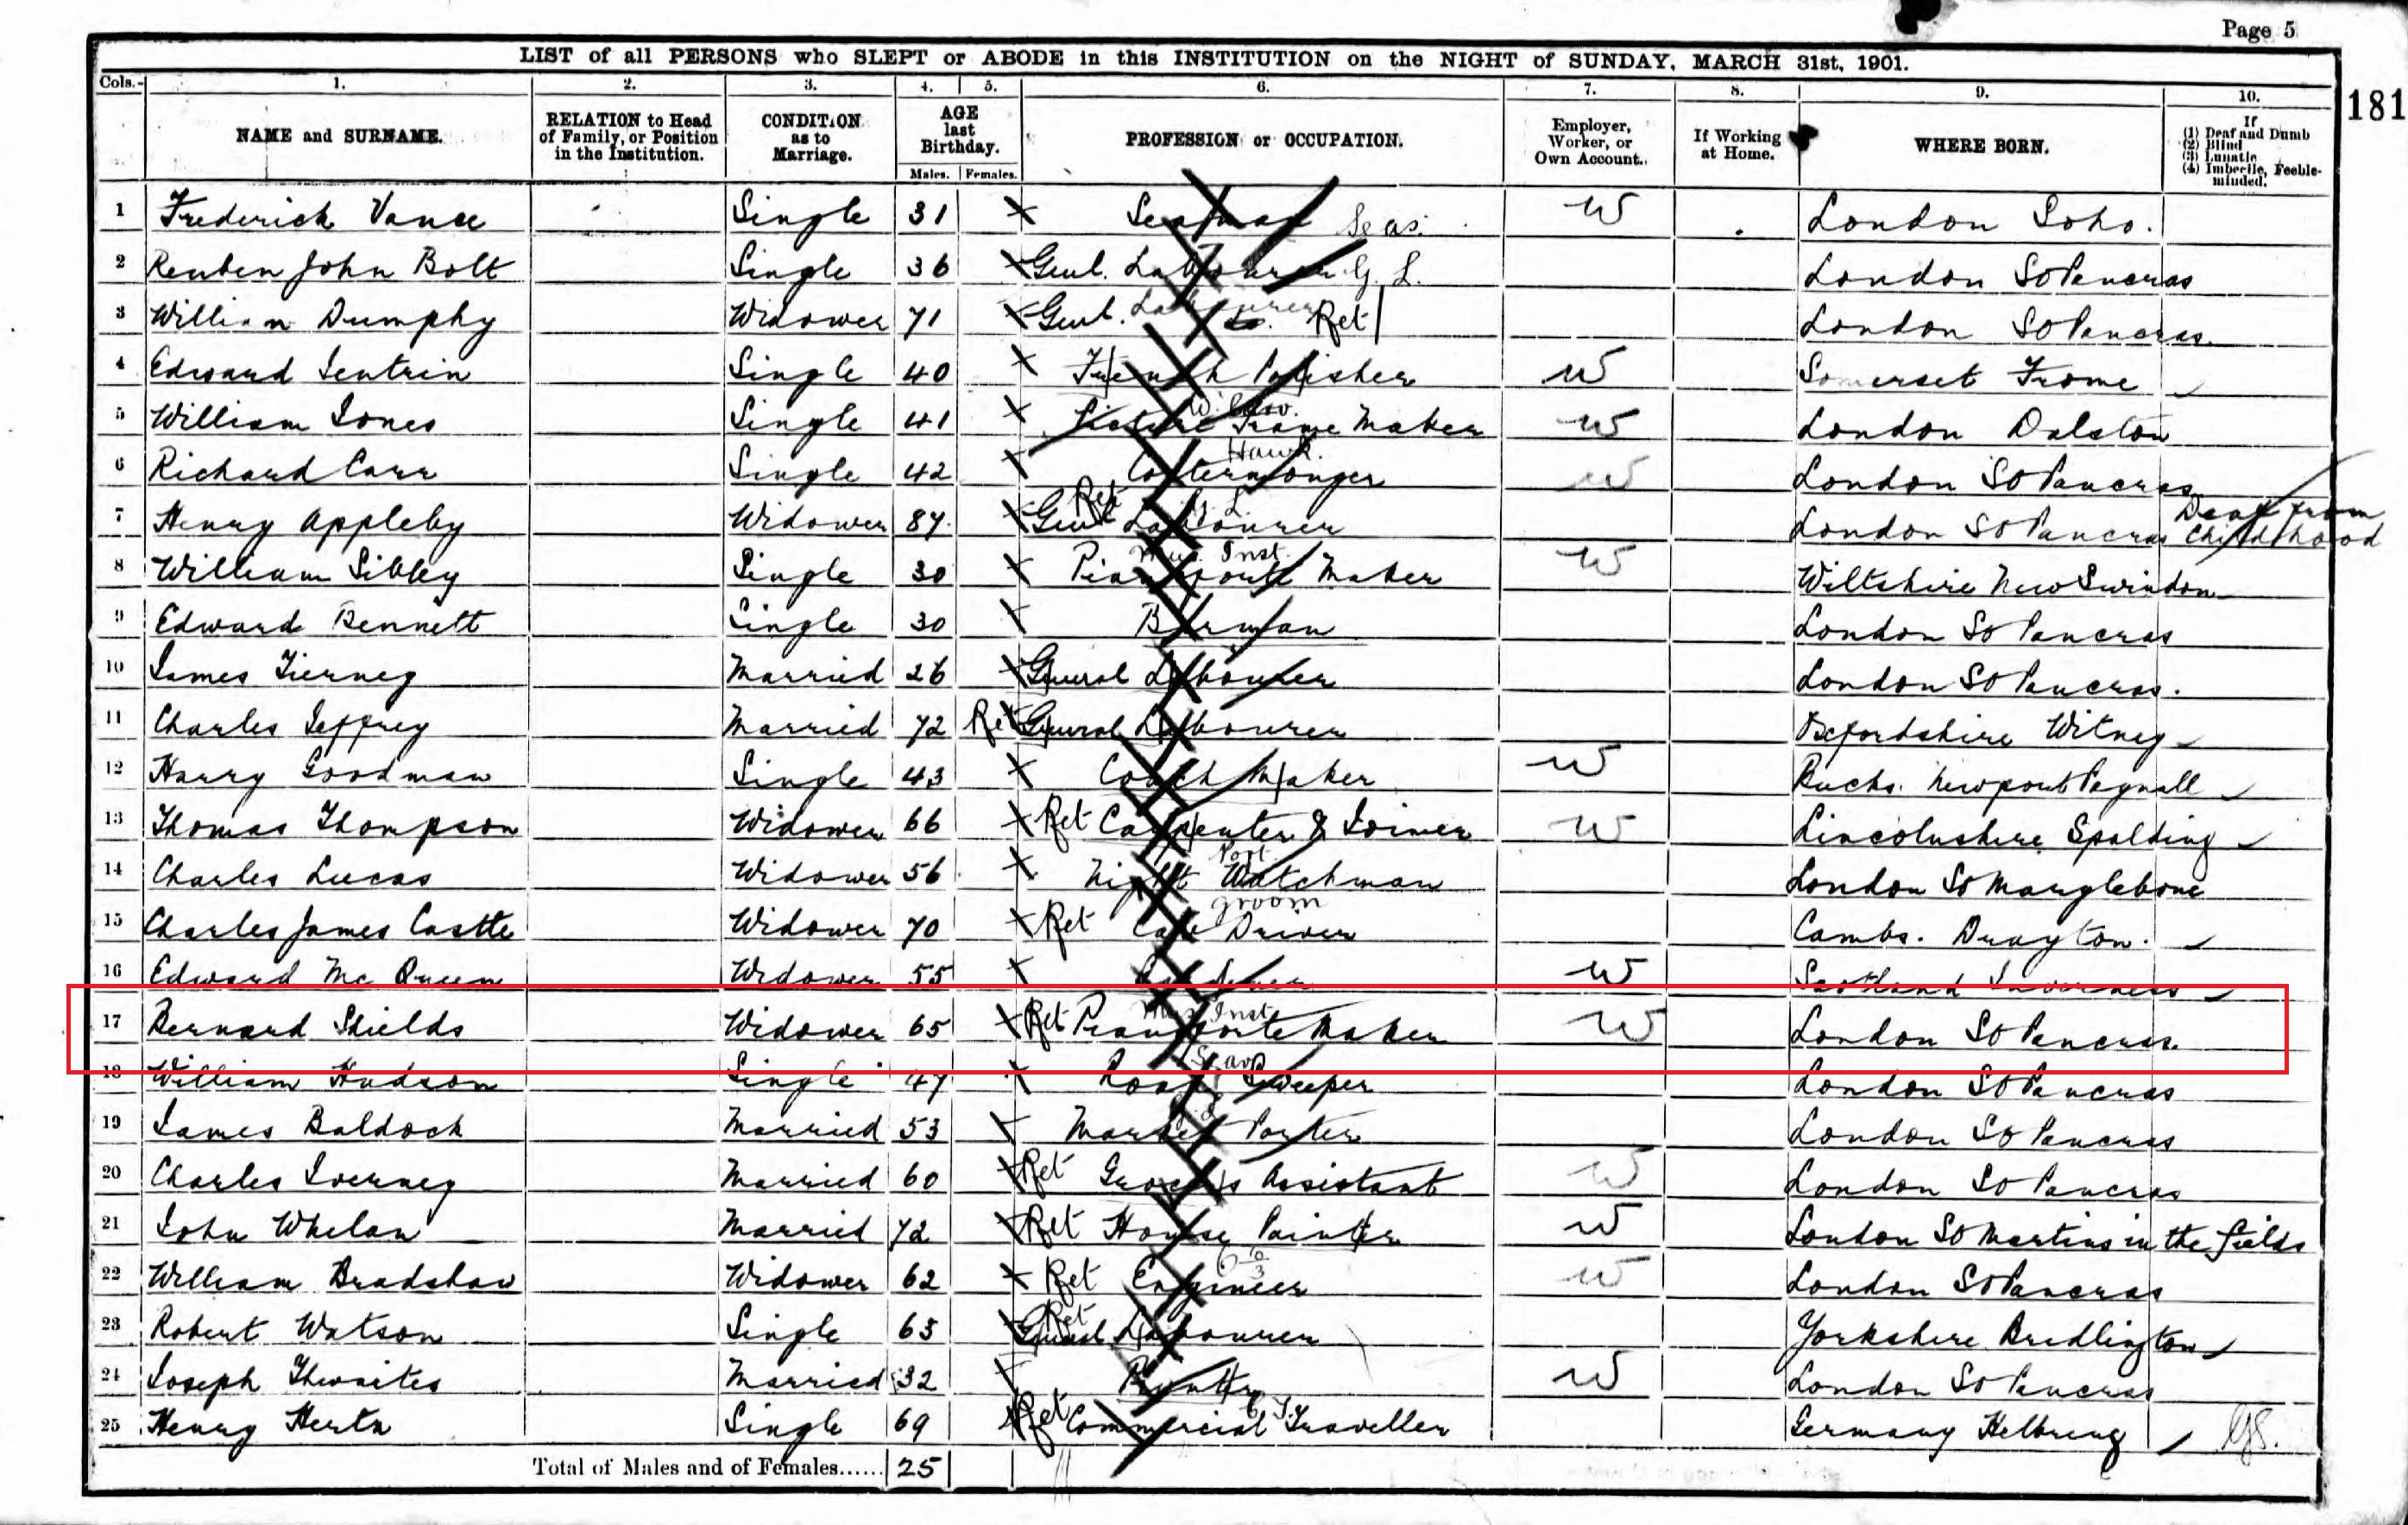 Page 5
LIST of all PERSONS who SLEPT or ABODE in this INSTITUTION on the NIGHT of SUNDAY, MARCH 31st, 1901.
181
Cols.- 1. 2. 3. 4. 5. 6. 7. 8. 9. 10.
NAME and SURNAME. RELATION to Head of Family, or Position in the Institution. CONDITION as to Marriage. AGE last Birthday. Males. Females. PROFESSION or OCCUPATION. Employer, Worker, or Own Account. If Working at Home. WHERE BORN. If (1) Deaf and Dumb (2) Blind (3) Lunatic (4) Imbecile, Feeble-minded.
1 Frederick Vance Single 31 X Seaman Seas. W London Soho.
2 Reuben John Bolt Single 36 X Genl. Labourer G. L. London St Pancras
3 William Dumphy Widower 71 X Genl. Labourer Ret London St Pancras.
4 Edward Sentrin Single 40 X French Polisher W Somerset Frome
5 William Jones Single 41 X Picture Frame Maker W London Dalston
6 Richard Carr Single 42 X Costermonger Hawk. W London St Pancras
7 Henry Appleby Widower 87 X Ret Genl Labourer G. L. London St Pancras Deaf from Childhood
8 William Sibley Single 30 X Pianoforte Maker Mus. Inst. W Wiltshire New Swindon
9 Edward Bennett Single 30 X Barman London St Pancras
10 James Tierney Married 26 X General Labourer London St Pancras.
11 Charles Jeffrey Married 72 Ret X General Labourer Oxfordshire Witney
12 Harry Goodman Single 43 X Coach Maker W Bucks. Newport Pagnall
13 Thomas Thompson Widower 66 X Ret Carpenter & Joiner W Lincolnshire Spalding
14 Charles Lucas Widower 56 X Night Watchman Port London St Marylebone
15 Charles James Castle Widower 70 X Ret Cab Driver groom Cambs. Drayton.
16 Edward Mc Queen Widower 55 X W Scotland Inverness
17 Bernard Shields Widower 65 X Ret Pianoforte Maker Mus Inst W London St Pancras.
18 William Hudson Single 47 X Road Sweeper Scav London St Pancras
19 James Baldock Married 53 X Market Porter London St Pancras
20 Charles Ret Grocers Assistant Married 60 X W London St Pancras
21 John Whelan Married 72 X Ret House Painter W London St Martins in the fields
22 William Bradshaw Widower 62 X Ret Engineer W London St Pancras
23 Robert Watson Single 65 Ret General Labourer Yorkshire Bridlington
24 Joseph Thwaites Married 32 X W London St Pancras
25 Henry Single 69 X Ret Commercial Traveller C. T. Germany GS.
Total of Males and of Females...... 25